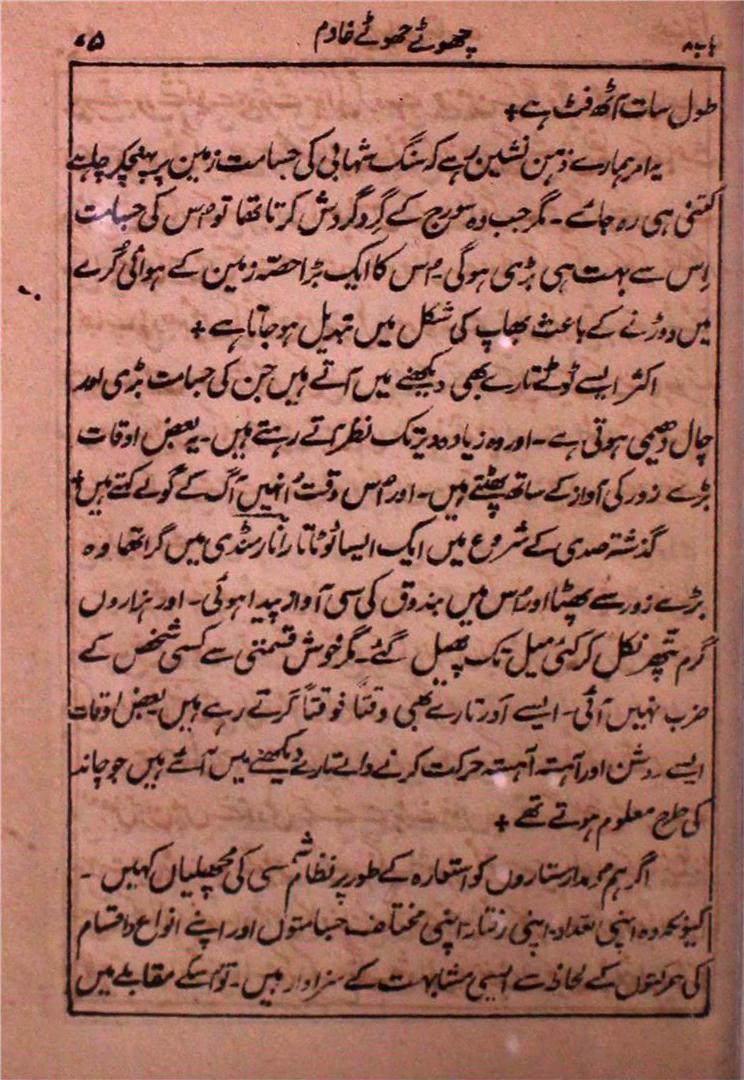 باب ۸ چھوٹے چھوٹے خادم ۷۵
طول سات آٹھ فٹ ہے +
یہ امر ہمارے ذہن نشین رہے کہ سنگ شہابی کی جسامت زمین پر پہنچکر چاہے
کتنی ہی رہ جائے۔ مگر جب وہ سورج کے گرد گردش کرتا تھا تو اُس کی جسامت
اِس سے بہت ہی بڑی ہوگی۔ اُس کا ایک بڑا حصّہ زمین کے ہوائی کُرے
میں دوڑنے کے باعث بھاپ کی شکل میں تبدیل ہو جاتا ہے +
اکثر ایسے ٹوٹے تارے بھی دیکھنے میں آتے ہیں جن کی جسامت بڑی اور
چال دھیمی ہوتی ہے۔ اور وہ زیادہ دیر تک نظر آتے رہتے ہیں۔ یہ بعض اوقات
بڑے زور کی آواز کے ساتھ پھٹتے ہیں۔ اور اُس وقت اُنہیں آگ کے گولے کہتے ہیں +
گذشتہ صدی کے شروع میں ایک ایسا ٹوٹا تارا نارمنڈی میں گرا تھا وہ
بڑے زور سے پھٹا اور اُس میں بندوق کی سی آواز پیدا ہوئی۔ اور ہزاروں
گرم پتھر نکل کر کئی میل تک پھیل گئے۔ مگر خوش قسمتی سے کسی شخص کے
ضرب نہیں آئی۔ ایسے اَور تارے بھی وقتاً فوقتاً گرتے رہے ہیں بعض اوقات
ایسے روشن اور آہستہ آہستہ حرکت کرنے والے تارے دیکھنے میں آئے ہیں جو چاند
کی طرح معلوم ہوتے تھے +
اگر ہم دمدار ستاروں کو استعارہ کے طور پر نظام شمسی کی مچھلیاں کہیں۔
کیونکہ وہ اپنی تعداد۔ اپنی رفتار۔ اپنی مختلف جسامتوں اور اپنے انواع و اقسام
کی حرکتوں کے لحاظ سے ایسی مشابہت کے سزاوار ہیں۔ تو اُسکے مقابلے میں